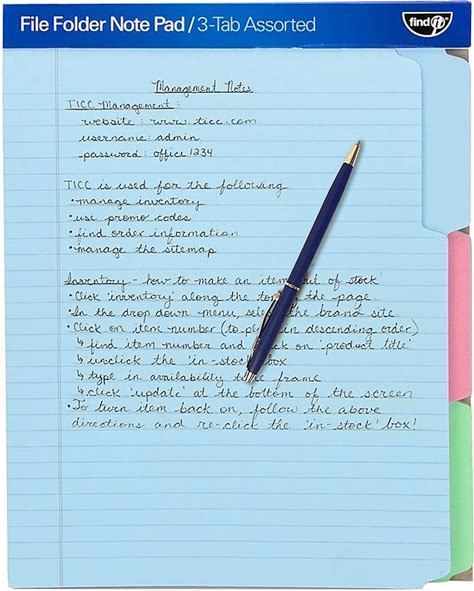 File Folder Note Pad / 3-Tab Assorted
find it
Management Notes
TICC Management:
website: www.ticc.com
username: admin
password: office 1234
TICC is used for the following
• manage inventory
• use promo codes
• find order information
• manage the sitemap
Inventory - how to make an item out of stock'
• Click 'inventory' along the top the page.
• In the drop down menu, the brand site.
• Click on item number (to in descending order)
↳ find item number and on 'product title'
↳ unclick the 'in-stock' box
↳ type in availability frame
↳ click 'update' at the bottom of the screen
• To turn item back on, follow the above
directions and re-click the 'in-stock' box!